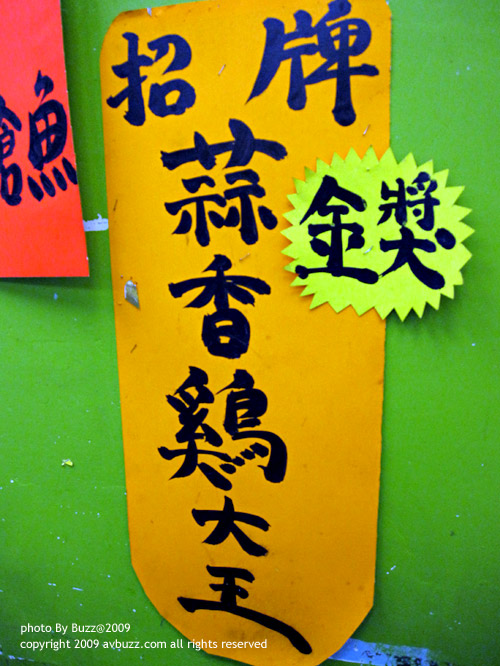 招牌
蒜香鷄大王
金獎
魚
photo By Buzz@2009
copyright 2009 avbuzz.com all rights reserved